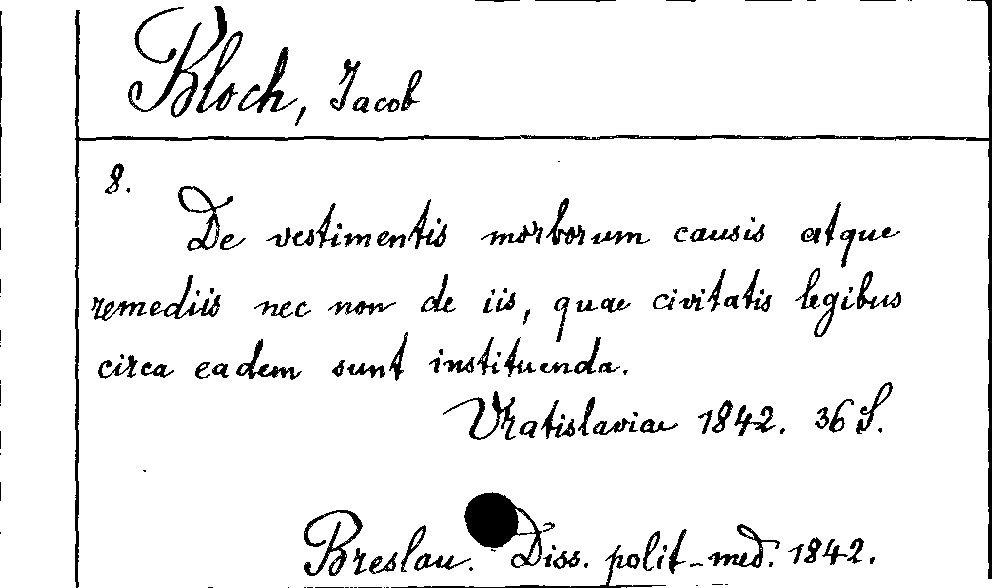 Bloch, Jacob
8.
De vestimentis morborum causis atque
remediis nec non de iis, quae civitatis legibus
circa eadem sunt instituenda.
Vratislaviae 1842. 36 S.
Breslau. Diss. polit-med. 1842.